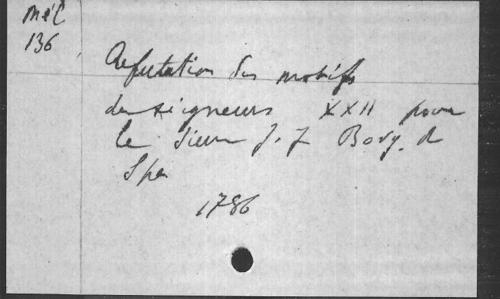 Mél
136
Refutation des motifs
des seigneurs XXII pour
le Sieur J. J Bory. de
Spa
1786